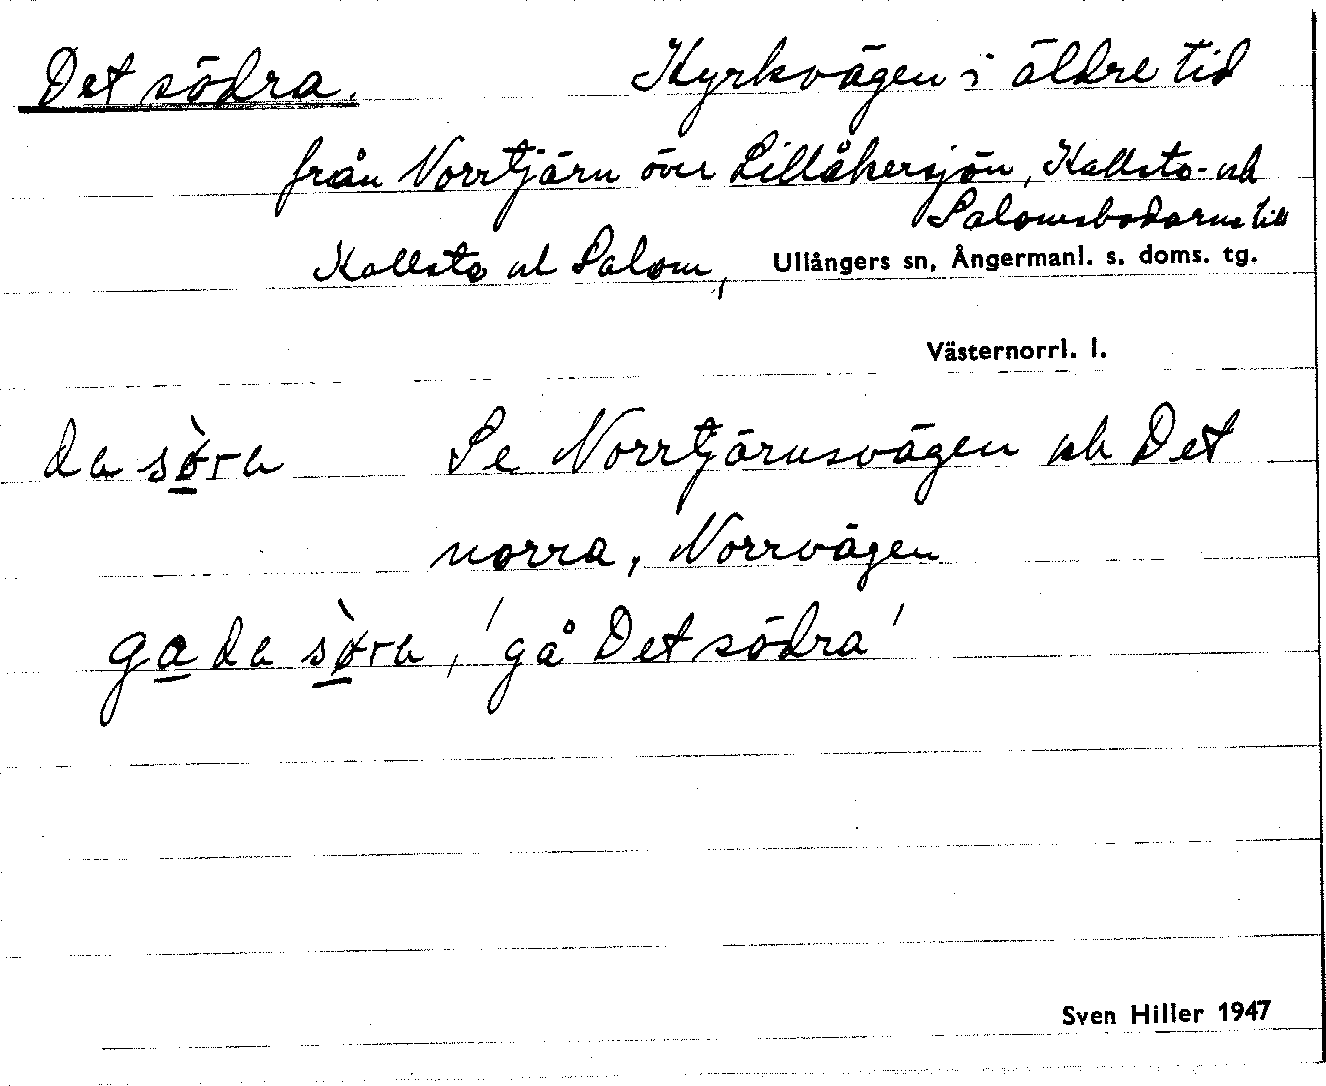 Det södra. Kyrkvägen i äldre tid
från Norrtjärn över Lillåkersjön, Kallsta- och
Salomsbodarna till
Kallsta och Salom, Ullångers sn, Ångermanl. s. doms. tg.
Västernorrl. l.
da sø̀ra Se Norrtjärnsvägen och Det
norra, Norrvägen
ga da sø̀ra, 'gå Det södra'
Sven Hiller 1947